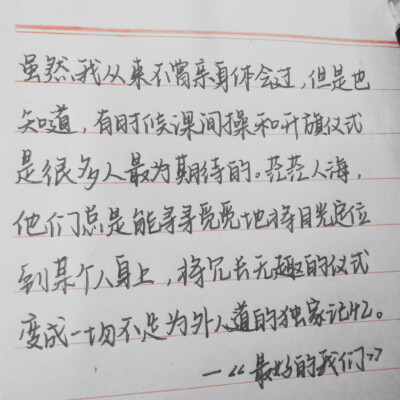 虽然我从来不曾亲身体会过，但是也
知道，有时候课间操和升旗仪式
是很多人最为期待的。茫茫人海，
他们总是能寻寻觅觅地将目光定位
到某个人身上，将冗长无趣的仪式
变成一场不足为外人道的独家记忆。
—《最好的我们》